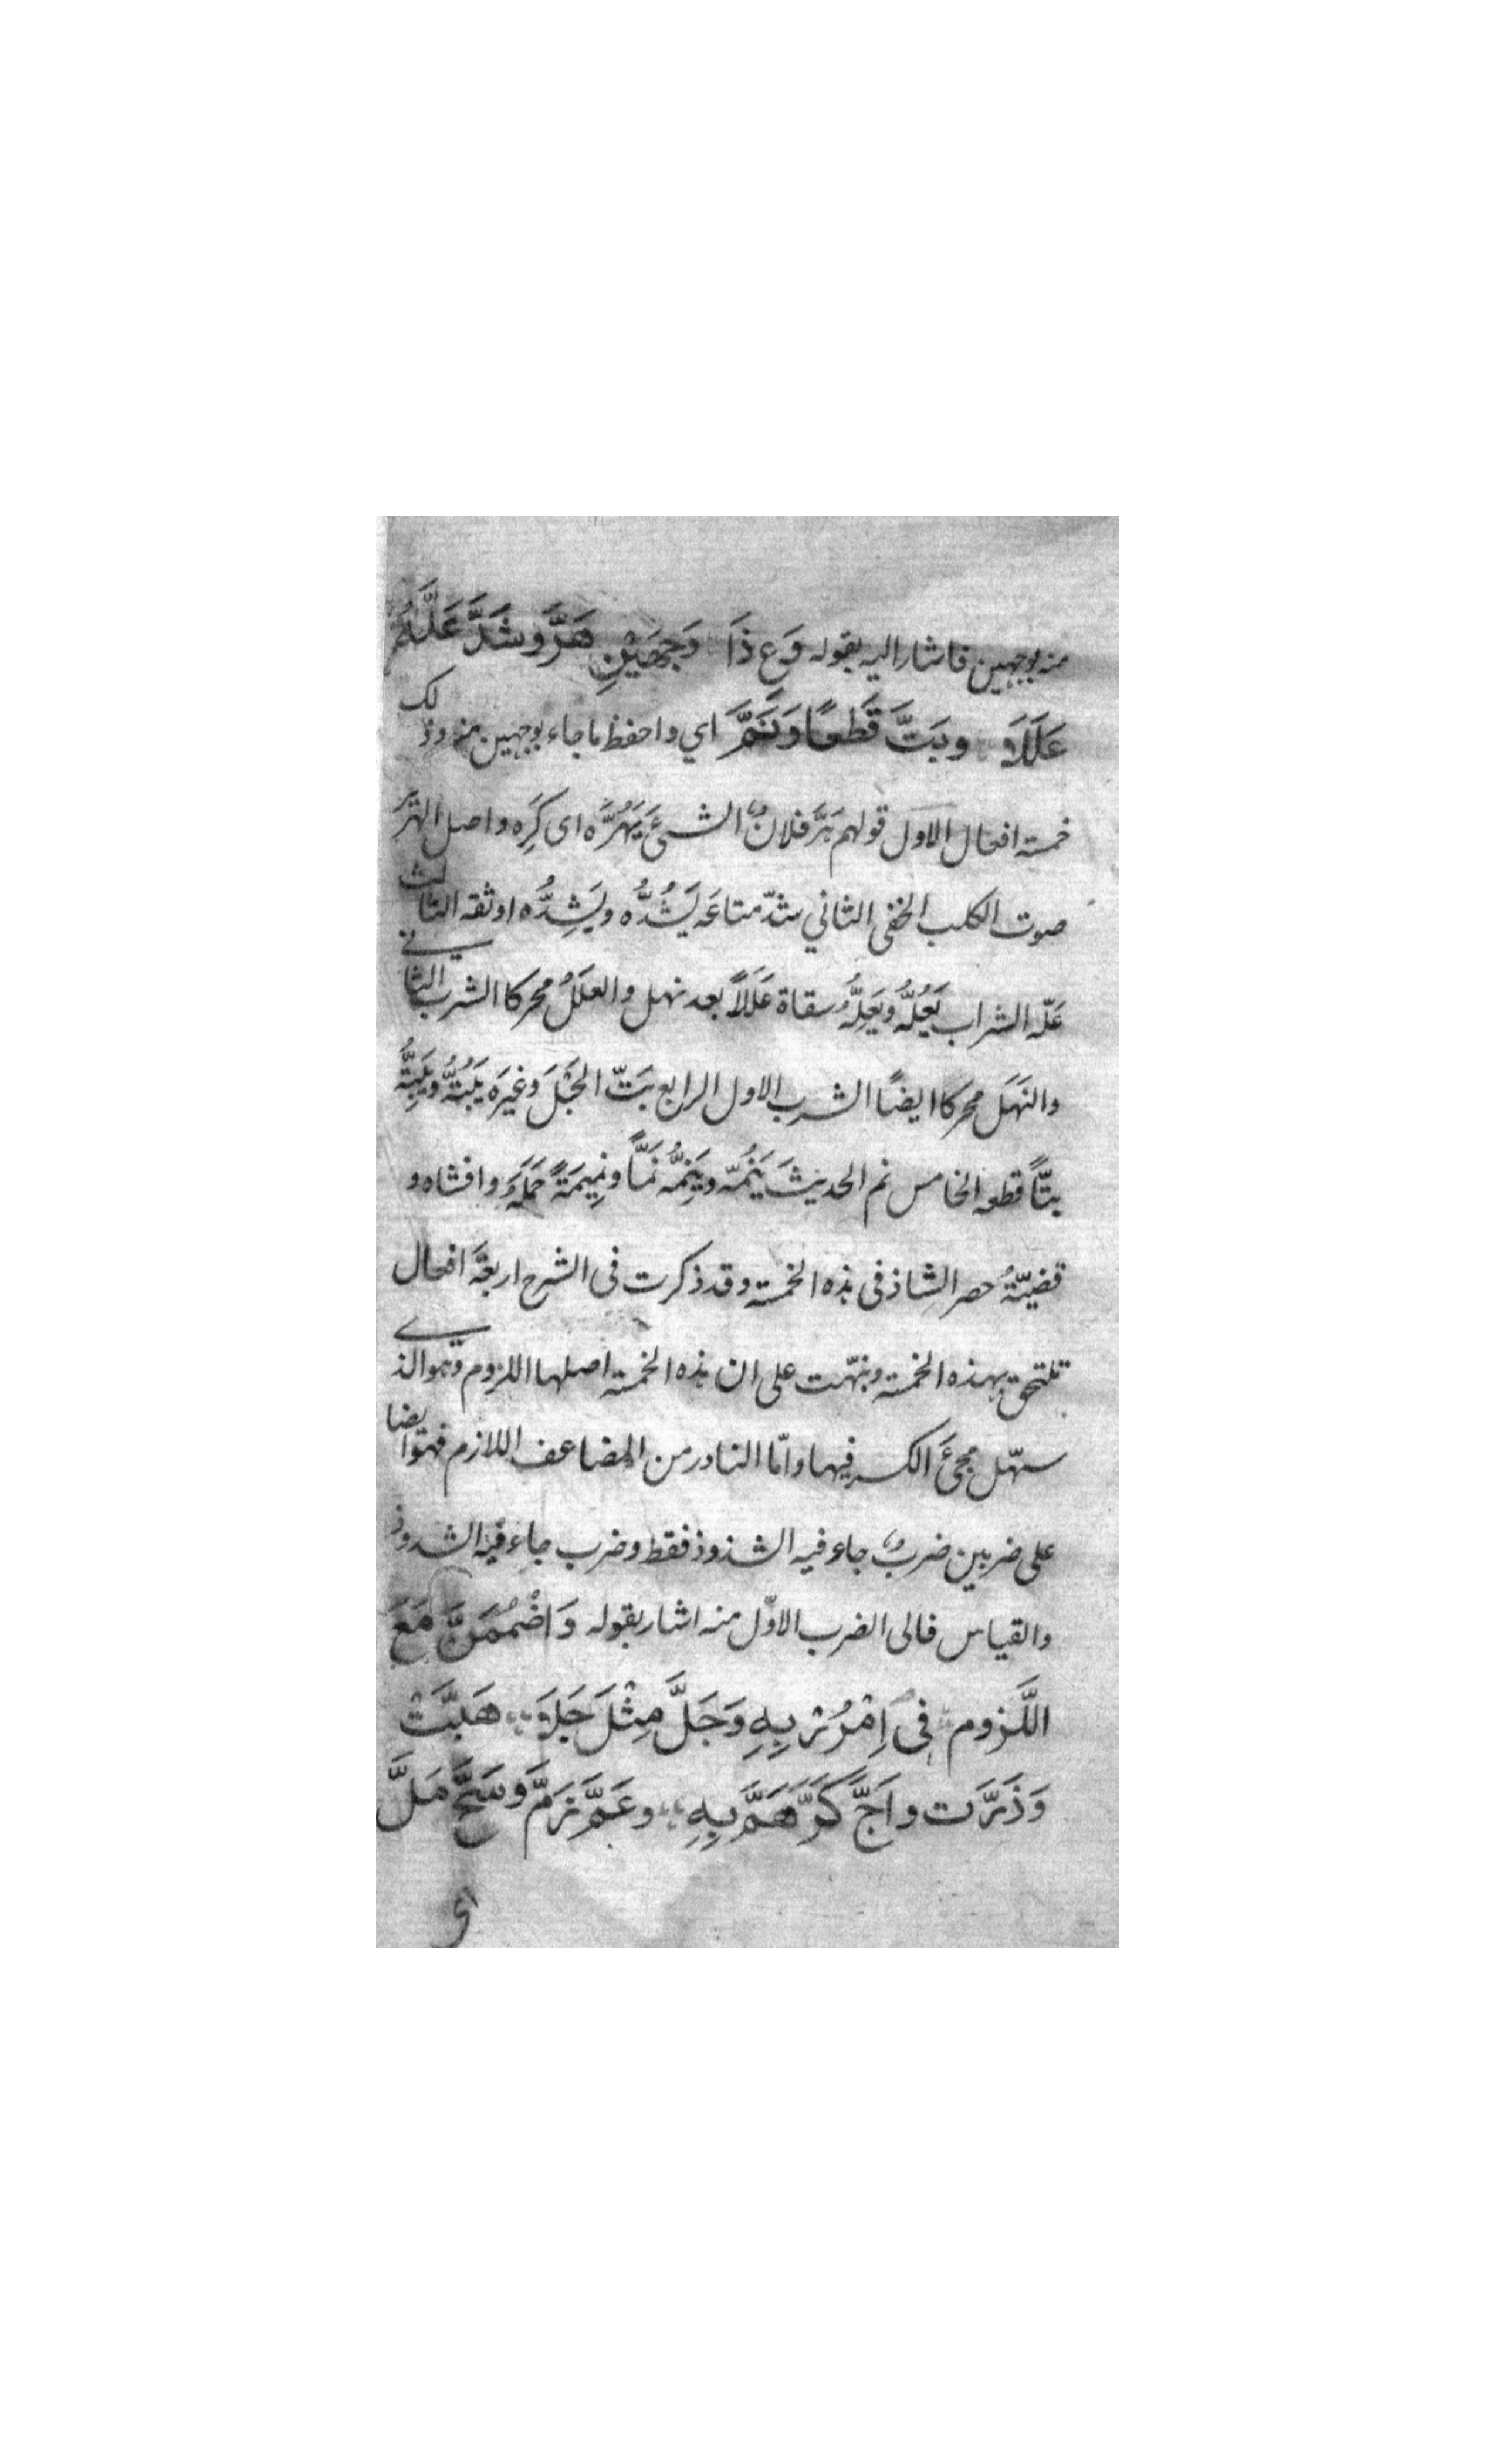 منه بوجهين فاشار اليه بقوله وَعِ ذَا وَجهَيْنِ هَرَّ وشَدَّ عَلَّهُ
عَلَلاَ وبَتَّ قَطعًا وَنَمَّ اي واحفظ ما جاء بوجهين منه وذلك
خمسة افعال الاول قولهم هَرَّ فلانٌ الشيئَ يَهُرُّه اى كَرِه واصل الهر
صوت الكلب الخفى الثاني شدّ متاعَه يَشُدُّه ويَشِدُّه اوثقه الثالث
علّه الشراب يَعُلُّه ويَعِلُّهُ سقاة عَلَلاً بعد نهل والعلَلُ محركا الشرب الثاني
والنَهَل محركا ايضًا الشرب الاول الرابع بَتّ الحَبْلَ وغيرَه يَبُتُّهُ ويَبِتُّهُ
بتًّا قطعه الخامس نم الحديثَ يَنُمّه ويَنِمُّه نَمًّا ونِمِيمَةً حَمَلَهُ وافشاه و
قضيّةُ حصر الشاذ فى هذه الخمسة وقد ذكرت فى الشرح اربعةَ افعال
تلتحق بهذه الخمسة ونبّهت على ان هذه الخمسة اصلها اللزوم وهو الذي
سهّل مجئَ الكسر فيها وامّا النادر من المضاعف اللازم فهو ايضا
على ضربين ضربٌ جاء فيه الشذوذ فقط وضرب جاء فيه الشذوذ
والقياس فالى الضرب الاوّل منه اشار بقوله وَاضْمُمَنَّ مَعَ
اللَّزوم فى اِمْرُرْ بِهِ وَجَلَّ مِثْلَ جَلاَ هَبَّتْ
وَذَرَّت واَجَّ كَرَّ هَمَّ بِهِ وعَمَّ زَمَّ وسَحَّ مَلَّ
اى